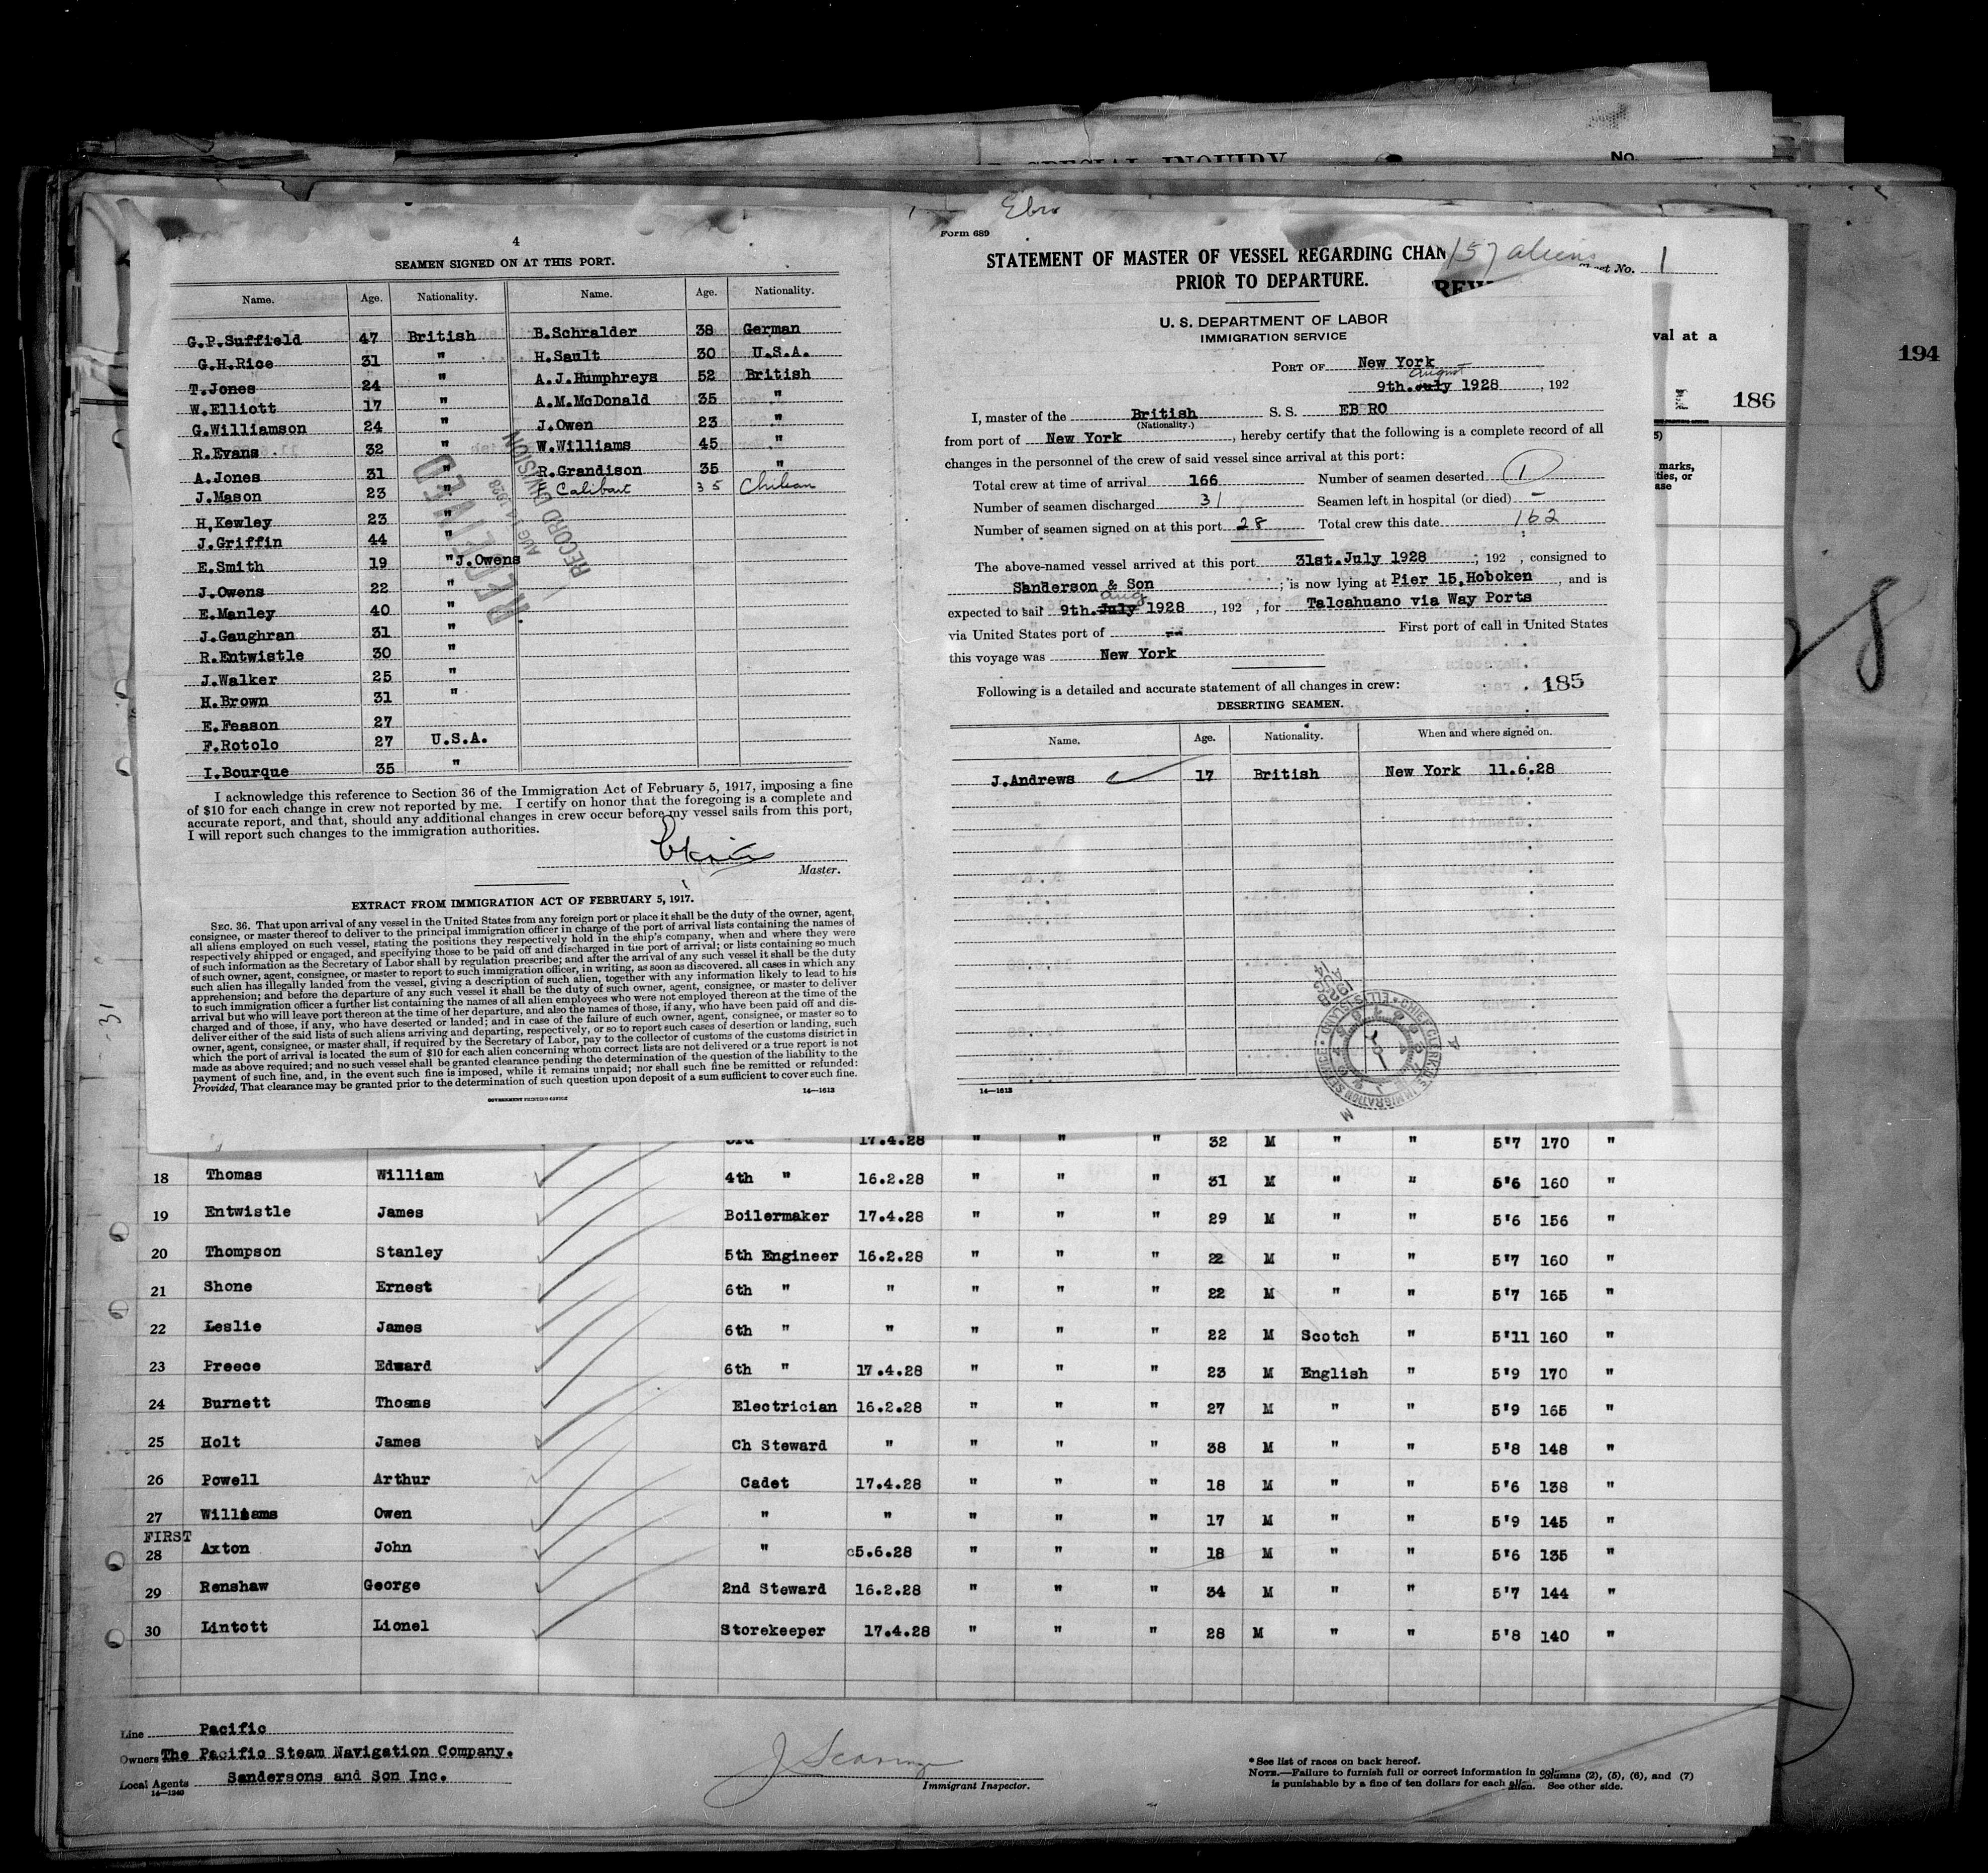 SPECIAL INQUIRY
No.
194
val at a
186
5)
marks,
ities, or
ase
4
SEAMEN SIGNED ON AT THIS PORT.
Name. Age. Nationality. Name. Age. Nationality.
G.P.Suffield 47 British B.Schralder 38 German
G.H.Rice 31 " H.Sault 30 U.S.A.
T.Jones 24 " A.J.Humphreys 52 British
W.Elliott 17 " A.M.McDonald 35 "
G.Williamson 24 " J.Owen 23 "
R.Evans 32 " W.Williams 45 "
A.Jones 31 " R.Grandison 35 "
J.Mason 23 " Calibart 35 Chilean
H,Kewley 23 "
J.Griffin 44 "
E.Smith 19 " J.Owens
J.Owens 22 "
E.Manley 40 "
J.Gaughran 31 "
R.Entwistle 30 "
J.Walker 25 "
H.Brown 31 "
E.Feason 27
F.Rotolo 27 U.S.A.
I.Bourque 35 "
RECEIVED
AUG 14 1928
RECORD DIVISION
I acknowledge this reference to Section 36 of the Immigration Act of February 5, 1917, imposing a fine
of $10 for each change in crew not reported by me. I certify on honor that the foregoing is a complete and
accurate report, and that, should any additional changes in crew occur before my vessel sails from this port,
I will report such changes to the immigration authorities.
Master.
EXTRACT FROM IMMIGRATION ACT OF FEBRUARY 5, 1917.
SEC. 36. That upon arrival of any vessel in the United States from any foreign port or place it shall be the duty of the owner, agent,
consignee, or master thereof to deliver to the principal immigration officer in charge of the port of arrival lists containing the names of
all aliens employed on such vessel, stating the positions they respectively hold in the ship's company, when and where they were
respectively shipped or engaged, and specifying those to be paid off and discharged in the port of arrival; or lists containing so much
of such information as the Secretary of Labor shall by regulation prescribe; and after the arrival of any such vessel it shall be the duty
of such owner, agent, consignee, or master to report to such immigration officer, in writing, as soon as discovered, all cases in which any
such alien has illegally landed from the vessel, giving a description of such alien, together with any information likely to lead to his
apprehension; and before the departure of any such vessel it shall be the duty of such owner, agent, consignee, or master to deliver
to such immigration officer a further list containing the names of all alien employees who were not employed thereon at the time of the
arrival but who will leave port thereon at the time of her departure, and also the names of those, if any, who have been paid off and dis-
charged and of those, if any, who have deserted or landed; and in case of the failure of such owner, agent, consignee, or master so to
deliver either of the said lists of such aliens arriving and departing, respectively, or so to report such cases of desertion or landing, such
owner, agent, consignee, or master shall, if required by the Secretary of Labor, pay to the collector of customs of the customs district in
which the port of arrival is located the sum of $10 for each alien concerning whom correct lists are not delivered or a true report is not
made as above required; and no such vessel shall be granted clearance pending the determination of the question of the liability to the
payment of such fine, and, in the event such fine is imposed, while it remains unpaid; nor shall such fine be remitted or refunded:
Provided, That clearance may be granted prior to the determination of such question upon deposit of a sum sufficient to cover such fine.
GOVERNMENT PRINTING OFFICE 14—1613
31
Ebro
Form 689
157 aliens
Sheet No. 1
STATEMENT OF MASTER OF VESSEL REGARDING CHAN
PRIOR TO DEPARTURE.
U. S. DEPARTMENT OF LABOR
IMMIGRATION SERVICE
PORT OF New York
August
9th. July 1928, 192
I, master of the British S. S. EBRO
(Nationality.)
from port of New York, hereby certify that the following is a complete record of all
changes in the personnel of the crew of said vessel since arrival at this port:
Total crew at time of arrival 166 Number of seamen deserted 1
Number of seamen discharged 31 Seamen left in hospital (or died) -
Number of seamen signed on at this port 28 Total crew this date 162
The above-named vessel arrived at this port 31st.July 1928; 192 , consigned to
Sanderson & Son; is now lying at Pier 15,Hoboken, and is
Aug
expected to sail 9th.July 1928, 192 , for Talcahuano via Way Ports
via United States port of -- First port of call in United States
this voyage was New York
Following is a detailed and accurate statement of all changes in crew: 185
DESERTING SEAMEN.
Name. Age. Nationality. When and where signed on.
J.Andrews 17 British New York 11.6.28
14—1613
1928 AUG 14
CHIEF CLERK'S IMMIGRATION SERVICE ELLIS ISLAND
28
3rd " 17.4.28 " " " 32 M " " 5'7 170 "
18 Thomas William 4th " 16.2.28 " " " 31 M " " 5'6 160 "
19 Entwistle James Boilermaker 17.4.28 " " " 29 M " " 5'6 156 "
20 Thompson Stanley 5th Engineer 16.2.28 " " " 22 M " " 5'7 160 "
21 Shone Ernest 6th " " " " " 22 M " " 5'7 165 "
22 Leslie James 6th " " " " " 22 M Scotch " 5'11 160 "
23 Preece Edward 6th " 17.4.28 " " " 23 M English " 5'9 170 "
24 Burnett Thoams Electrician 16.2.28 " " " 27 M " " 5'9 165 "
25 Holt James Ch Steward " " " " 38 M " " 5'8 148 "
26 Powell Arthur Cadet 17.4.28 " " " 18 M " " 5'6 138 "
27 Williams Owen " " " " " 17 M " " 5'9 145 "
FIRST
28 Axton John " 5.6.28 " " " 18 M " " 5'6 135 "
29 Renshaw George 2nd Steward 16.2.28 " " " 34 M " " 5'7 144 "
30 Lintott Lionel Storekeeper 17.4.28 " " " 28 M " " 5'8 140 "
Line Pacific
Owners The Pacific Steam Navigation Company.
Local Agents Sandersons and Son Inc.
14—1240
Immigrant Inspector.
*See list of races on back hereof.
NOTE.—Failure to furnish full or correct information in columns (2), (5), (6), and (7)
is punishable by a fine of ten dollars for each alien. See other side.